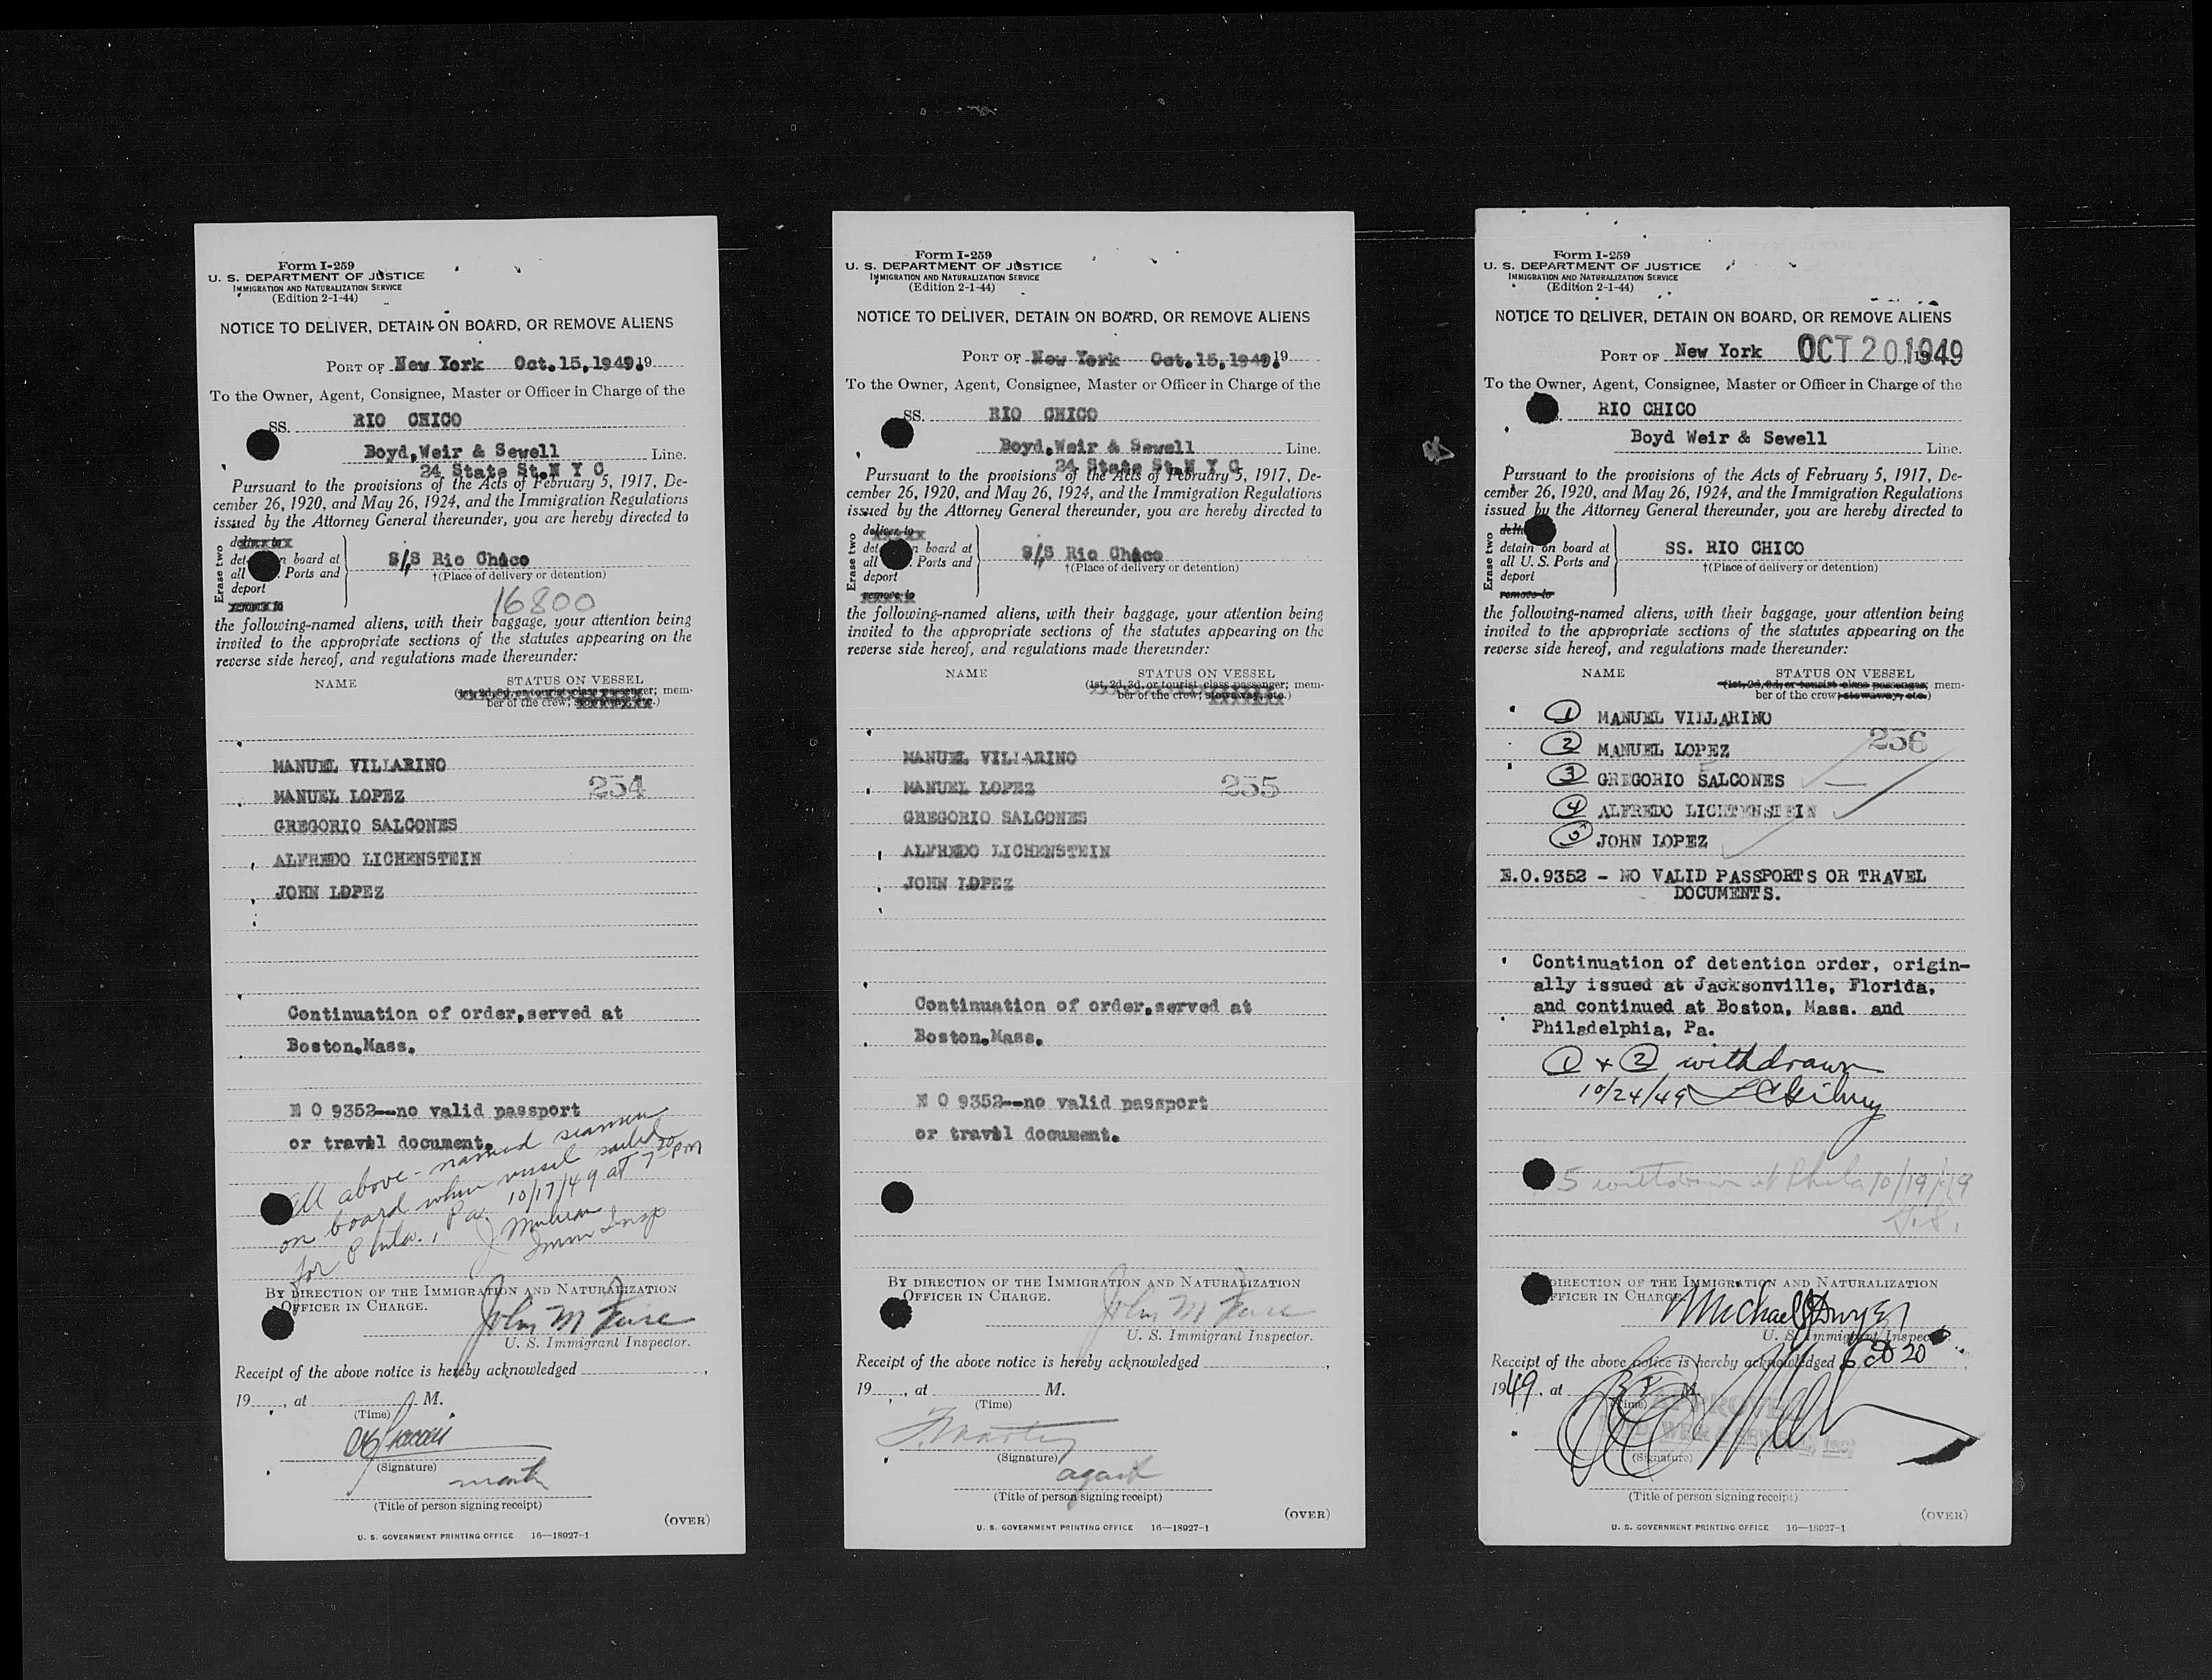 Form I-259
U. S. DEPARTMENT OF JUSTICE
IMMIGRATION AND NATURALIZATION SERVICE
(Edition 2-1-44)
NOTICE TO DELIVER, DETAIN ON BOARD, OR REMOVE ALIENS
PORT OF New York Oct.15,1949. 19
To the Owner, Agent, Consignee, Master or Officer in Charge of the
SS. RIO CHICO
Boyd,Weir & Sewell Line.
24 State St.N Y C
Pursuant to the provisions of the Acts of February 5, 1917, De-
cember 26, 1920, and May 26, 1924, and the Immigration Regulations
issued by the Attorney General thereunder, you are hereby directed to
Erase two
deliver to
det n board at
all Ports and
deport
remove to
S/S Rio Chico
†(Place of delivery or detention)
16800
the following-named aliens, with their baggage, your attention being
invited to the appropriate sections of the statutes appearing on the
reverse side hereof, and regulations made thereunder:
NAME STATUS ON VESSEL
(1st, 2d, 3d, or tourist class passenger; mem-
ber of the crew; stowaway, etc.)
MANUEL VILLARINO
MANUEL LOPEZ 254
GREGORIO SALCONES
ALFREDO LICHENSTEIN
JOHN LOPEZ
Continuation of order,served at
Boston,Mass.
E O 9352--no valid passport
or travel document.
All above-named seamen
on board when vessel sailed
for Phila., Pa. 10/17/49 at 7 30 PM
Imm Insp
BY DIRECTION OF THE IMMIGRATION AND NATURALIZATION
OFFICER IN CHARGE.
John M
U. S. Immigrant Inspector.
Receipt of the above notice is hereby acknowledged
19 , at M.
(Time)
(Signature)
(Title of person signing receipt)
(OVER)
U. S. GOVERNMENT PRINTING OFFICE 16—18927-1
Form I-259
U. S. DEPARTMENT OF JUSTICE
IMMIGRATION AND NATURALIZATION SERVICE
(Edition 2-1-44)
NOTICE TO DELIVER, DETAIN ON BOARD, OR REMOVE ALIENS
PORT OF New York Oct.15,1949. 19
To the Owner, Agent, Consignee, Master or Officer in Charge of the
SS. RIO CHICO
Boyd,Weir & Sewell Line.
24 State St.N Y C
Pursuant to the provisions of the Acts of February 5, 1917, De-
cember 26, 1920, and May 26, 1924, and the Immigration Regulations
issued by the Attorney General thereunder, you are hereby directed to
Erase two
deliver to
det n board at
all . Ports and
deport
remove to
S/S Rio Chico
†(Place of delivery or detention)
the following-named aliens, with their baggage, your attention being
invited to the appropriate sections of the statutes appearing on the
reverse side hereof, and regulations made thereunder:
NAME STATUS ON VESSEL
(1st, 2d, 3d, or tourist class passenger; mem-
ber of the crew; stowaway, etc.)
MANUEL VILLARINO
MANUEL LOPEZ 255
GREGORIO SALCONES
ALFREDO LICHENSTEIN
JOHN LOPEZ
Continuation of order,served at
Boston,Mass.
E O 9352--no valid passport
or travel document.
BY DIRECTION OF THE IMMIGRATION AND NATURALIZATION
OFFICER IN CHARGE.
John M
U. S. Immigrant Inspector.
Receipt of the above notice is hereby acknowledged
19 , at M.
(Time)
(Signature)
agent
(Title of person signing receipt)
(OVER)
U. S. GOVERNMENT PRINTING OFFICE 16—18927-1
Form I-259
U. S. DEPARTMENT OF JUSTICE
IMMIGRATION AND NATURALIZATION SERVICE
(Edition 2-1-44)
NOTICE TO DELIVER, DETAIN ON BOARD, OR REMOVE ALIENS
PORT OF New York OCT 20 1949
To the Owner, Agent, Consignee, Master or Officer in Charge of the
RIO CHICO
Boyd Weir & Sewell Line.
Pursuant to the provisions of the Acts of February 5, 1917, De-
cember 26, 1920, and May 26, 1924, and the Immigration Regulations
issued by the Attorney General thereunder, you are hereby directed to
Erase two
detain on board at
all U. S. Ports and
deport
remove to
SS. RIO CHICO
†(Place of delivery or detention)
the following-named aliens, with their baggage, your attention being
invited to the appropriate sections of the statutes appearing on the
reverse side hereof, and regulations made thereunder:
NAME STATUS ON VESSEL
(1st, 2d, 3d, or tourist class passenger; mem-
ber of the crew; stowaway, etc.)
1 MANUEL VILLARINO
2 MANUEL LOPEZ 256
3 GREGORIO SALCONES
4 ALFREDO LICHTENSTEIN
5 JOHN LOPEZ
E.O.9352 - NO VALID PASSPORTS OR TRAVEL
DOCUMENTS.
Continuation of detention order, origin-
ally issued at Jacksonville, Florida,
and continued at Boston, Mass. and
Philadelphia, Pa.
1 + 2 withdrawn
10/24/49
5 withdrawn at Phila 10/19/49
BY DIRECTION OF THE IMMIGRATION AND NATURALIZATION
OFFICER IN CHARGE.
Michael
U. S. Immigrant Inspector.
Receipt of the above notice is hereby acknowledged Oct 20
1949, at M.
(Time)
APPROVED
BOYD, WEIR & SEWELL, INC.
(Signature)
(Title of person signing receipt)
(OVER)
U. S. GOVERNMENT PRINTING OFFICE 16—18927-1